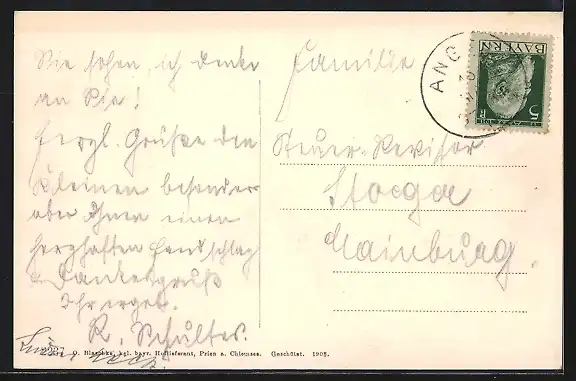 Sie sehen, ich denke
an Sie!
Herzl. Grüße den
Kleinen besonders
aber Ihnen einen
herzhaften Handschlag
Dankesgruß
Ihr ergeb.
R. Schultes.
Familie
Steuer-Revisor
Mainburg.
ANG
BAYERN
5
O. Blaschke, kgl. bayr. Hoflieferant, Prien a. Chiemsee. Geschützt. 1905.